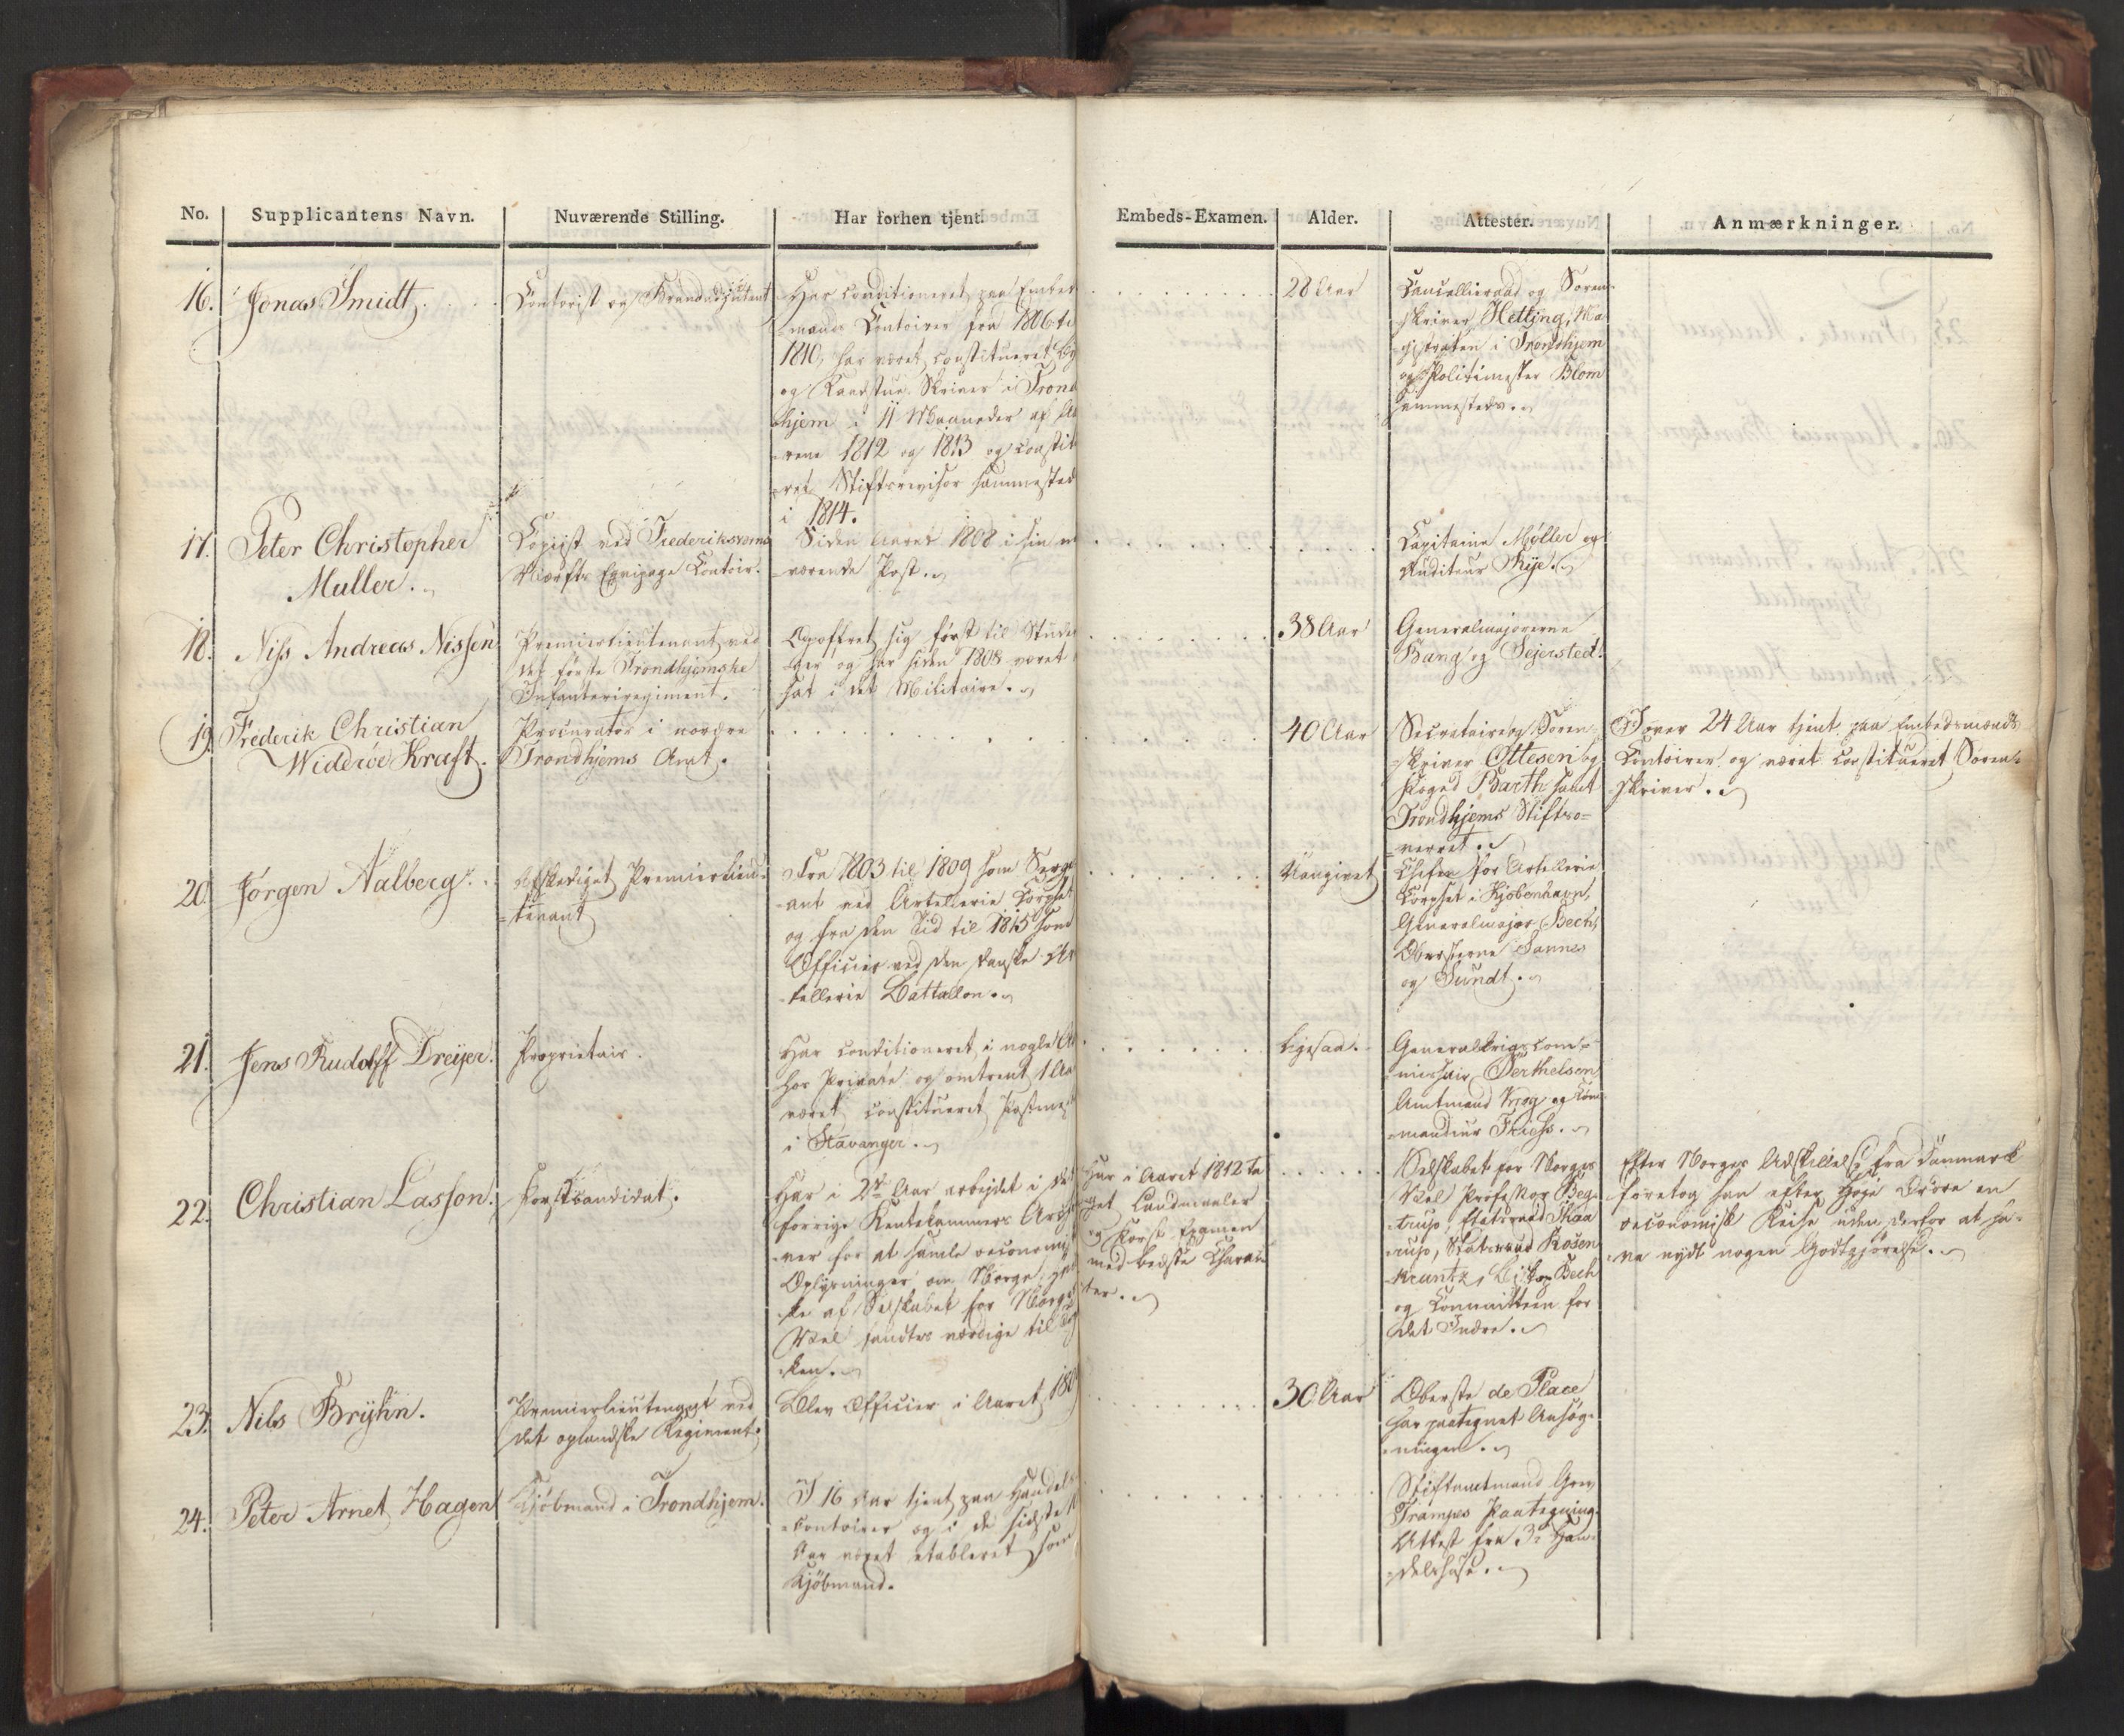 No. Supplicantens Navn. Nuværende Stilling. Har forhen tjent. Embeds-Examen. Alder. Attester. Anmærkninger.
16. Jonas Smidt.
Contorist og Brandadjutant
Har conditioneret paa Embed
mands Contoirer fra 1806 ti
1810, har været constitueret By
og Raadstue Skriver i Trond
hjem i 11 Maaneder af Aa
rene 1812 og 1813 og constit
eret Stiftsrevisor sammested
i 1814.
28 Aar
Cancelliraad og Soren
skriver Hetting, Ma
gistraten i Trondhjem
og Politimester Blom
sammesteds.
17. Peter Christopher
Muller.
Copiist ved Frederiksværns
Værfts Eqvipage Contoir.
Siden Aaret 1808 i sin n
værende Post.
Capitaine Møller og
Auditeur Rye.
18. Niss Andreas Nissen
Premierlieutenant ved
det første Trondhjemske
Infanteriregiment.
Opoffret sig først til Stude
ger og har siden 1808 været
sat i det Militaire.
38 Aar
Generalmajorerne
Bang og Sejersted.
19. Frederik Christian
Widerøe Kraft.
Procurator i nordre
Trondhjems Amt.
40 Aar
Secretaire og Soren
skriver Ottesen og
Foged Barth samt
Trondhjems Stiftso=
verret.
I over 24 Aar tjent paa Embedsmænds
Contoirer og været constitueret Soren=
skriver.
20. Jørgen Aalberg.
Afskediget Premierlieu=
tenant
Fra 1803 til 1809 som Serge
ant ved Artellerie Corpset
og fra den Tid til 1815 som
Officier ved den danske Ar
tellerie Battallon.
Uangivet
Chefen for Artellerie
Corpset i Kjøbenhavn,
Generalmajor Bech,
Obersterne Sannes
og Sundt.
21. Jens Rudolff Dreyer.
Proprietair.
Har conditioneret i nogle Aa
hos Private og omtrent 1 Aa
været constitueret Postmes
i Stavanger.
ligesaa.
Generalkrigscom=
missair Berthelsen
Amtmand Krog og Com
mandeur Fries.
22. Christian Lasson.
Forstcandidat.
Har i 2de Aar arbejdet i det
forrige Rentekammers Archi
ver for at samle oeconomisk
Oplysninger om Norge,
ke af Selskabet for Norges
Vel fandtes værdige til
ken.
Har i Aaret 1812 ta
get Landmaaler
og Forst Examen
med bedste Charac
ter.
Selskabet for Norges
Vel, Professor Beg=
trup, Etatsraad Thaa
rup, Statsraad Rosen
krantz, Biskop Bech
og Committeen for
det Indre.
Efter Norges Adskillelse fra Danmark
foretog han efter høje Ordre en
oeconomisk Reise uden derfor at ha=
ve nydt nogen Godtgjørelse.
23. Nils Bryhn.
Premierlieutenant ved
det oplandske Regiment.
Blev Officier i Aaret 180
30 Aar
Oberste de Place
har paategnet Ansøg=
ningen.
24. Peter Arnet Hagen
Kjøbmand i Trondhjem.
I 16 Aar tjent paa Handels
contoirer og i de sidste
Aar været etableret som
Kjøbmand.
Stiftamtmand Grev
Trampes Paategning.
Attest fra 3de Han=
delshuse.